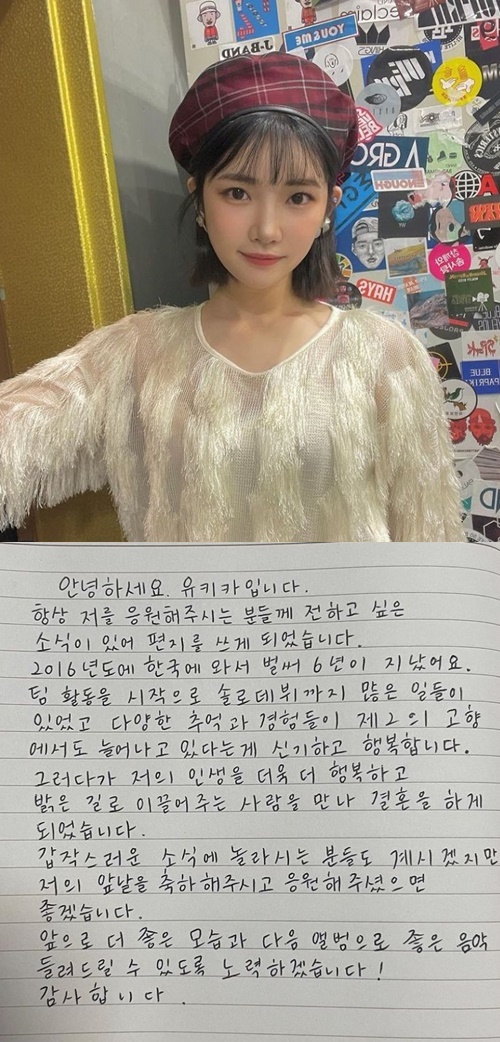 J-BAND
YOU&ME
A GRO
ENOUGH
HAYS
BLUE
PAPRIKA
안녕하세요. 유키카입니다.
항상 저를 응원해주시는 분들께 전하고 싶은
소식이 있어 편지를 쓰게 되었습니다.
2016년도에 한국에 와서 벌써 6년이 지났어요.
팀 활동을 시작으로 솔로데뷔까지 많은 일들이
있었고 다양한 추억과 경험들이 제2의 고향
에서도 늘어나고 있다는게 신기하고 행복합니다.
그러다가 저의 인생을 더욱 더 행복하고
밝은 길로 이끌어주는 사람을 만나 결혼을 하게
되었습니다.
갑작스러운 소식에 놀라시는 분들도 계시겠지만
저의 앞날을 축하해주시고 응원해주셨으면
좋겠습니다.
앞으로 더 좋은 모습과 다음 앨범으로 좋은 음악
들려드릴 수 있도록 노력하겠습니다!
감사합니다.